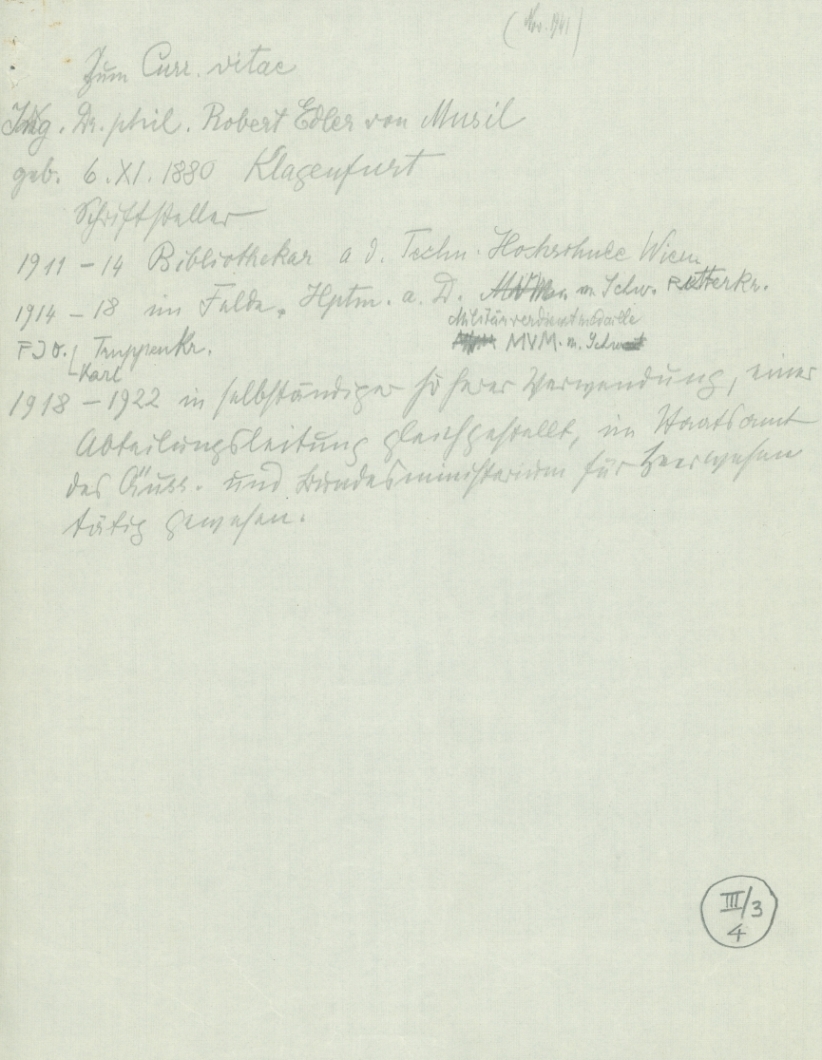 (Nov. 1941)
Zum Curr. vitae
Ing. Dr. phil. Robert Edler von Musil
geb. 6. XI. 1880 Klagenfurt
Schriftsteller
1911 – 14 Bibliothekar a d. Techn. Hochschule Wien
1914 – 18 im Felde. Hptm. a. D. m Schw. Ritterkr.
Militärverdienstmedaille
FJO. Truppenkr. MVM. m. Schwert
Karl
1918 – 1922 in selbständiger höherer Verwendung, einer
Abteilungsleitung gleichgestellt, im Staatsamt
des Äuss. und Bundesministerium für Heerwesen
tätig gewesen.
III/3
4